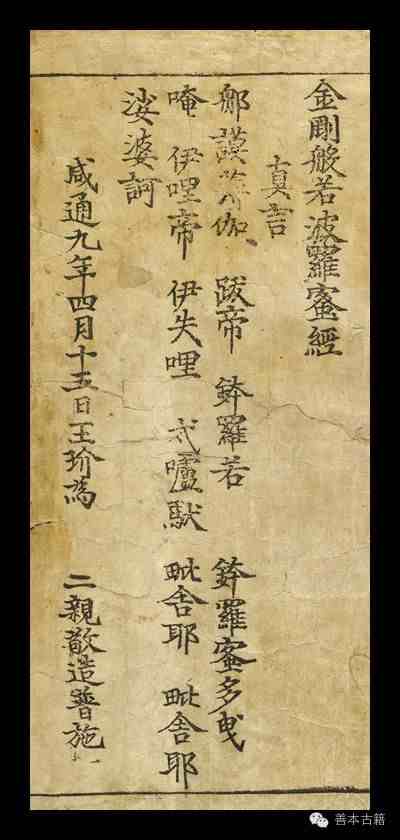 金剛般若波羅蜜經
真言
那謨伽 跋帝 鉢羅若 鉢羅蜜多曳
唵 伊哩帝 伊失哩 戍嚧馱 毗舍耶 毗舍耶
娑婆訶
咸通九年四月十五日王玠為 二親敬造普施
善本古籍